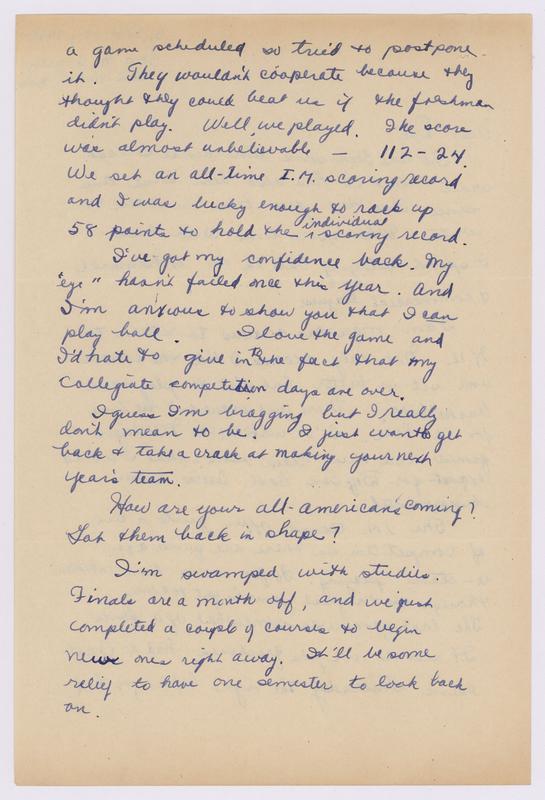 a game scheduled so tried to postpone
it. They wouldn't cooperate because they
thought they could beat us if the freshman
didn't play. Well, we played. The score
was almost unbelievable — 112-24.
We set an all-time I.M. scoring record
and I was lucky enough to rack up
individual
58 points to hold the scoring record.
I've got my confidence back. My
"eye" hasn't failed once this year. And
I'm anxious to show you that I can
play ball. I love the game and
I'd hate to give in to the fact that my
collegiate competition days are over.
I guess I'm bragging but I really
don't mean to be. I just want to get
back & take a crack at making your next
year's team.
How are your all-americans coming?
Got them back in shape?
I'm swamped with studies.
Finals are a month off, and we just
completed a couple of courses to begin
new ones right away. It'll be some
relief to have one semester to look back
on.